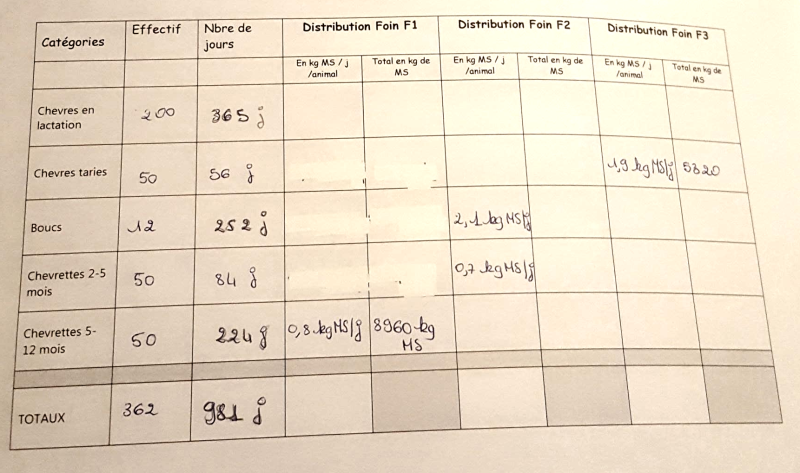 Catégories Effectif Nbre de jours Distribution Foin F1 Distribution Foin F2 Distribution Foin F3
En kg MS / j /animal Total en kg de MS En kg MS / j /animal Total en kg de MS En kg MS / j /animal Total en kg de MS
Chevres en lactation 200 365 j
Chevres taries 50 56 j 1,9 kg MS/j 5320
Boucs 12 252 j 2,1 kg MS/j
Chevrettes 2-5 mois 50 84 j 0,7 kg MS/j
Chevrettes 5-12 mois 50 224 j 0,8 kg MS/j 8960 kg MS
TOTAUX 362 981 j